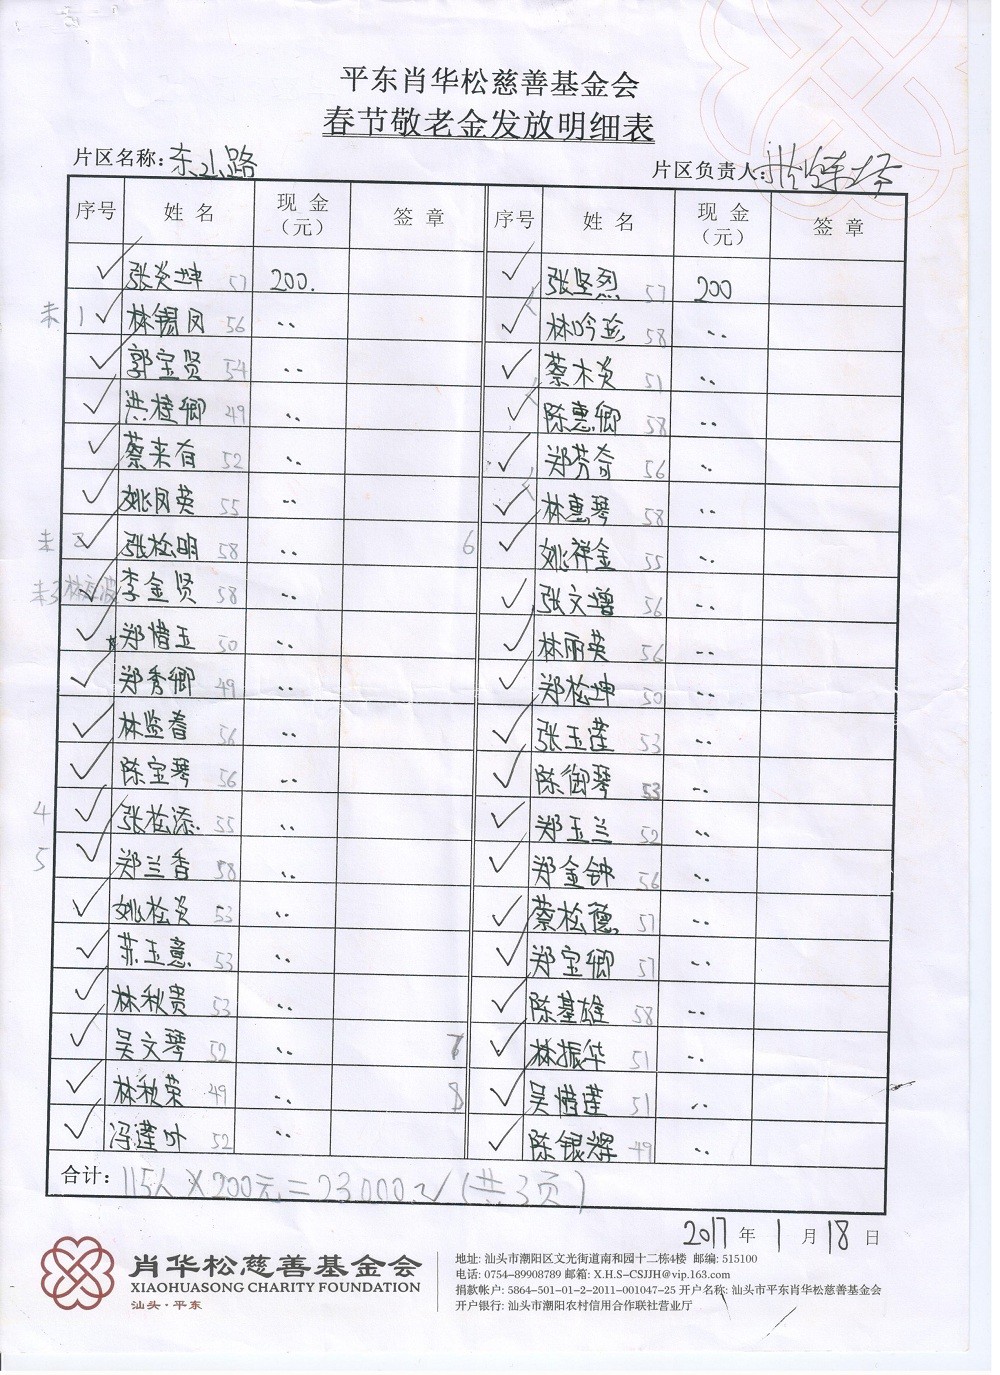 平东肖华松慈善基金会
春节敬老金发放明细表
片区名称: 东山路 片区负责人:
序号 姓名 现金（元） 签章 序号 姓名 现金（元） 签章
✓ 张炎坤 57 200. ✓ 张坚烈 57 200
未 1 ✓ 林锡凤 56 〃 ✓ 林吟 58 〃
✓ 郭宝贤 54 〃 ✓ 蔡木炎 51 〃
✓ 洪桂卿 49 〃 ✓ 陈惠卿 58 〃
✓ 蔡来有 52 〃 ✓ 郑芬奇 56 〃
✓ 姚凤英 55 〃 ✓ 林惠琴 58 〃
未 2 ✓ 张松明 58 〃 6 ✓ 姚祥金 55 〃
未3 ✓ 李金贤 58 〃 ✓ 张文增 56 〃
✓ 郑惜玉 50 〃 ✓ 林丽英 56 〃
✓ 郑秀卿 49 〃 ✓ 郑松坤 50 〃
✓ 林监春 56 〃 ✓ 张玉莲 53 〃
✓ 陈宝琴 56 〃 ✓ 陈御琴 53 〃
4 ✓ 张松添 55 〃 ✓ 郑玉兰 52 〃
5 ✓ 郑兰香 58 〃 ✓ 郑金钟 56 〃
✓ 姚松炎 53 〃 ✓ 蔡松德 57 〃
✓ 苏玉意 53 〃 ✓ 郑宝卿 57 〃
✓ 林秋贵 53 〃 ✓ 陈基雄 58 〃
✓ 吴文琴 52 〃 7 ✓ 林振华 51 〃
✓ 林秋荣 49 〃 8 ✓ 吴惜莲 51 〃
✓ 冯莲叶 52 〃 ✓ 陈银辉 49 〃
合计: 115人×200元=23000元(共3页)
2017年1月18日
肖华松慈善基金会
XIAOHUASONG CHARITY FOUNDATION
汕头·平东
地址: 汕头市潮阳区文光街道南和园十二栋4楼 邮编: 515100
电话: 0754-89908789 邮箱: X.H.S-CSJJH@vip.163.com
捐款帐户: 5864-501-01-2-2011-001047-25 开户名称: 汕头市平东肖华松慈善基金会
开户银行: 汕头市潮阳农村信用合作联社营业厅